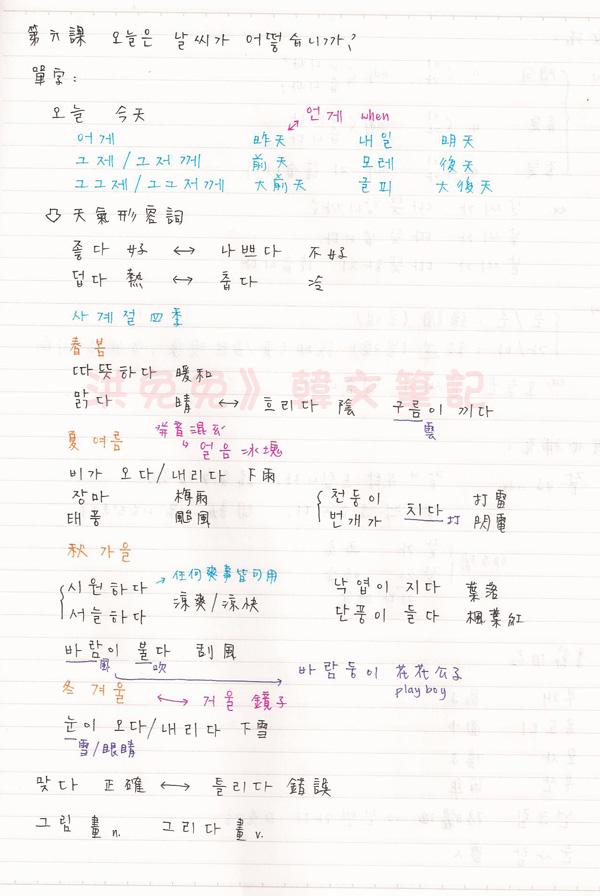 第六課 오늘은 날씨가 어떻습니까?
單字:
오늘 今天 언게 when
어게 昨天 내일 明天
그제/그저께 前天 모레 後天
그그제/그그저께 大前天 글피 大後天
天氣形容詞
좋다 好 ↔ 나쁘다 不好
덥다 熱 ↔ 춥다 冷
사계절 四季
春 봄
따뜻하다 暖和
洪兔兔》韓文筆記
맑다 晴 ↔ 흐리다 陰 구름이 끼다
雲
夏 여름 얼음 冰塊
비가 오다/내리다 下雨
장마 梅雨
태풍 颱風
천둥이 치다 打雷
번개가 打 閃電
秋 가을
시원하다 → 任何爽事皆可用
서늘하다 涼爽/涼快
낙엽이 지다 葉落
단풍이 들다 楓葉紅
바람이 불다 刮風
風 吹
바람둥이 花花公子
playboy
冬 겨울 ↔ 거울 鏡子
눈이 오다/내리다 下雪
雪/眼睛
맞다 正確 ↔ 틀리다 錯誤
그림 畫 n. 그리다 畫 v.